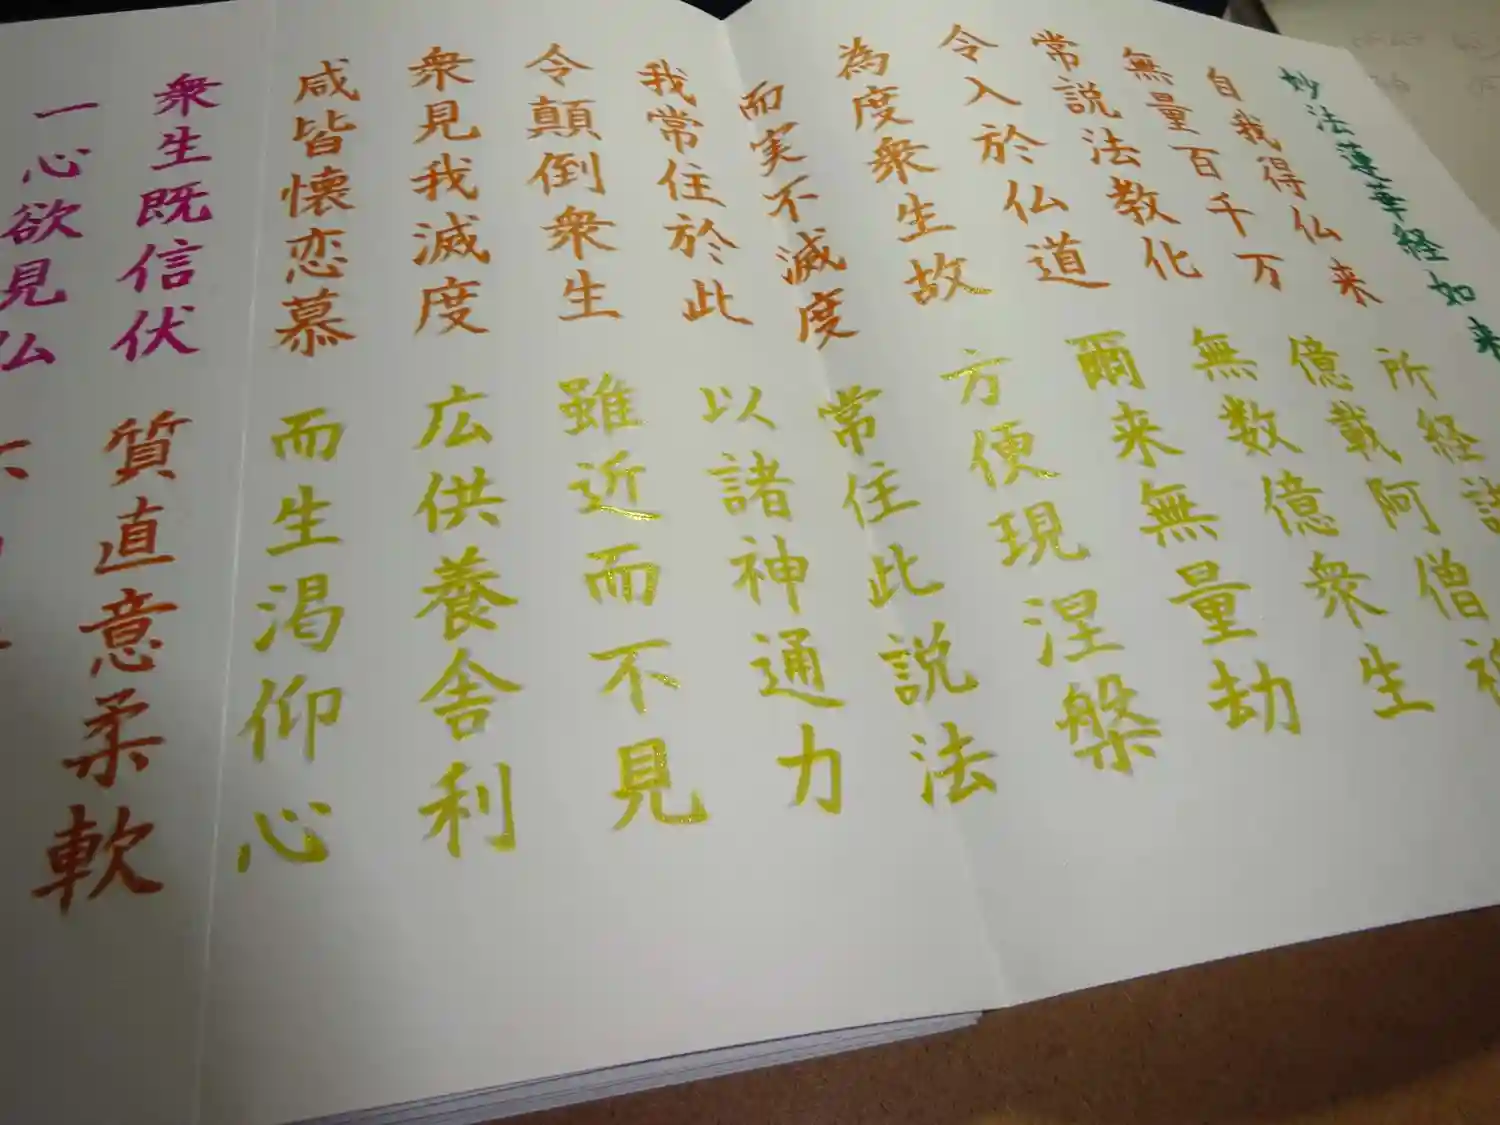 妙法蓮華経如来
自我得仏来 所経
無量百千万 億載阿僧
常説法教化 無数億衆生
令入於仏道 爾来無量劫
為度衆生故 方便現涅槃
而実不滅度 常住此説法
我常住於此 以諸神通力
令顛倒衆生 雖近而不見
衆見我滅度 広供養舎利
咸皆懐恋慕 而生渇仰心
衆生既信伏 質直意柔軟
一心欲見仏